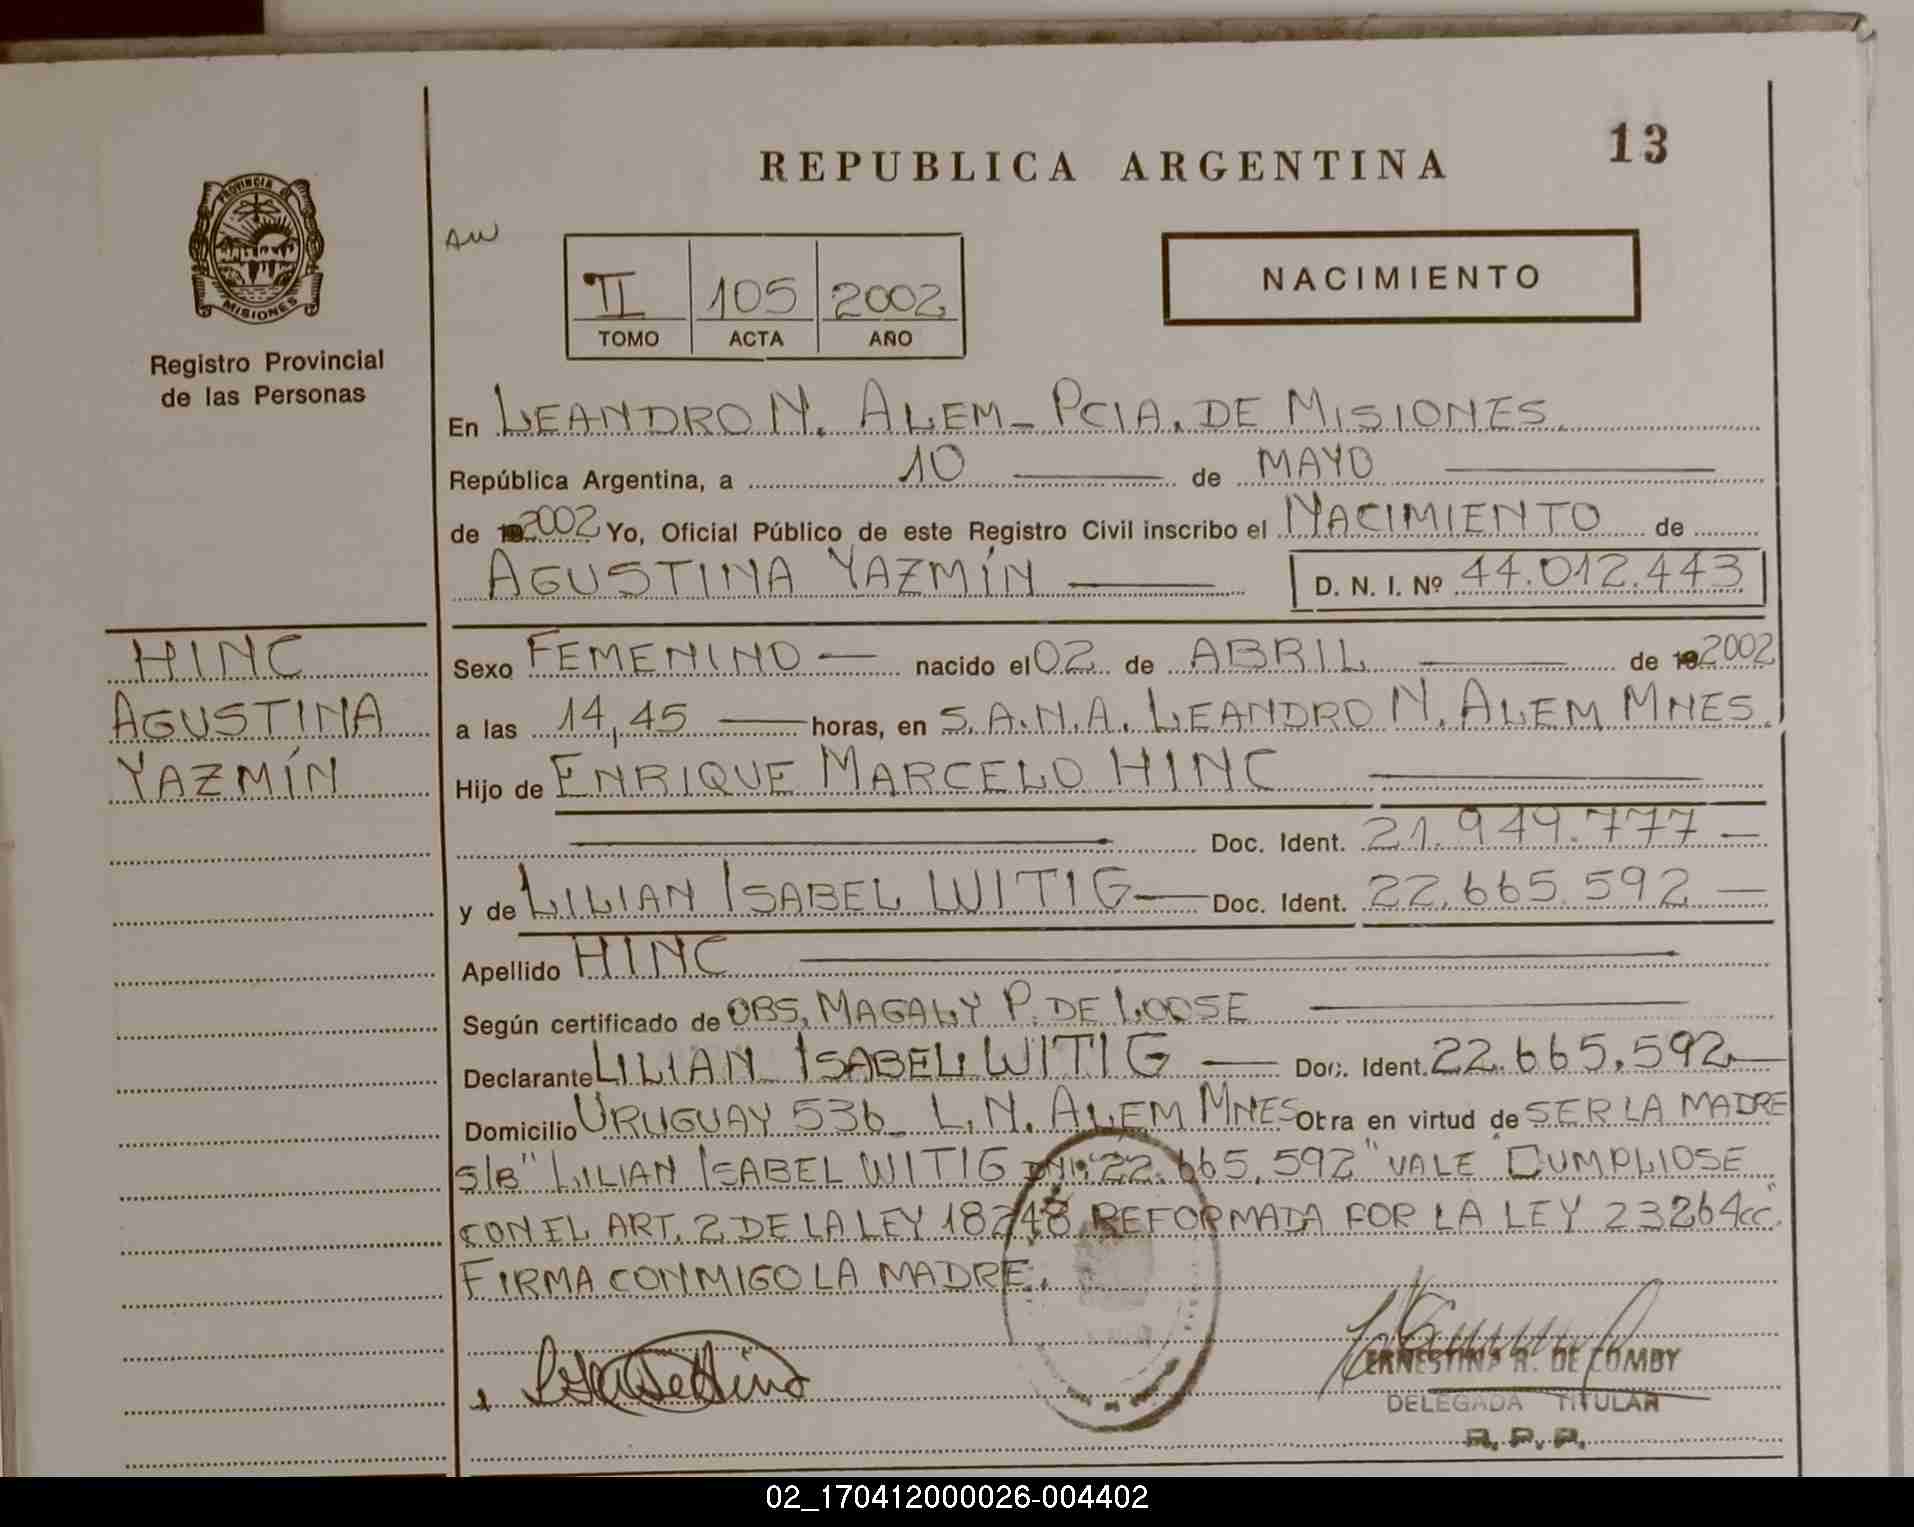 13
REPUBLICA ARGENTINA
PROVINCIA DE
MISIONES
Registro Provincial
de las Personas
AW
II 105 2002
TOMO ACTA AÑO
NACIMIENTO
En LEANDRO N. ALEM - PCIA. DE MISIONES.
República Argentina, a 10 de MAYO
de 2002 Yo, Oficial Público de este Registro Civil inscribo el NACIMIENTO de
AGUSTINA YAZMÍN D. N. I. Nº 44.012.443
HINC
AGUSTINA
YAZMÍN
Sexo FEMENINO — nacido el 02 de ABRIL de 2002
a las 14,45 horas, en S.A.N.A. LEANDRO N. ALEM MNES.
Hijo de ENRIQUE MARCELO HINC
Doc. Ident. 21.949.777 —
y de LILIAN ISABEL WITIG — Doc. Ident. 22.665.592 —
Apellido HINC
Según certificado de OBS. MAGALY P. DE LOOSE
Declarante LILIAN ISABEL WITIG — Doc. Ident. 22.665.592 —
Domicilio URUGUAY 536 L.N. ALEM MNES Obra en virtud de SER LA MADRE
S/B "LILIAN ISABEL WITIG DNI. 22.665.592" VALE CUMPLIOSE
CON EL ART. 2 DE LA LEY 18248 REFORMADA POR LA LEY 23264 CC.
FIRMA CONMIGO LA MADRE.
ERNESTINA R. DE COMBY
DELEGADA TITULAR
R. P. P.
02_170412000026-004402